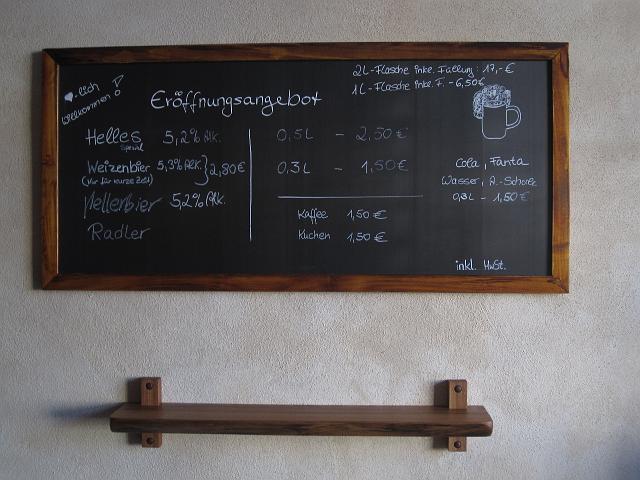 ♥-lich
Willkommen!
2L-Flasche inkl. Füllung: 17,-€
1L-Flasche inkl. F. - 6,50€
Eröffnungsangebot
Helles 5,2% Alk.
Spezial
Weizenbier 5,3% Alk. } 2,80€
(Nur für kurze Zeit)
Kellerbier 5,2% Alk.
Radler
0,5L - 2,50€
0,3L - 1,50€
Kaffee 1,50€
Kuchen 1,50€
Cola, Fanta
Wasser, A.-Schorle
0,3L - 1,50€
inkl. MwSt.